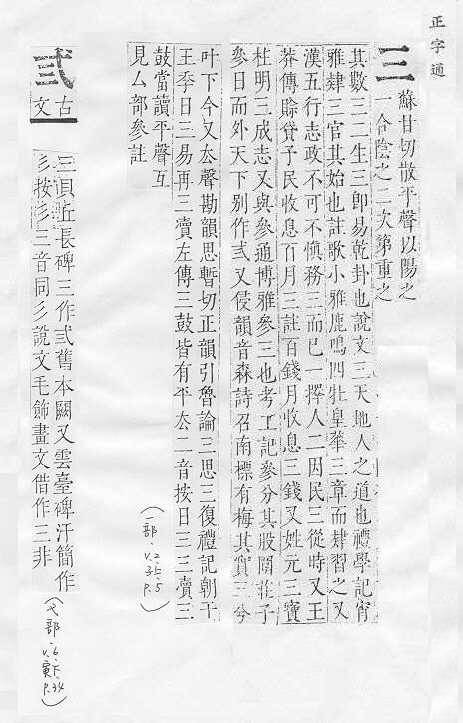 正字通
三
蘇甘切散平聲以陽之
一合陰之二次第重之
其數三二生三卽易乾卦也說文三天地人之道也禮學記宵
雅肄三官其始也註歌小雅鹿鳴四牡皇華三章而肄習之又
漢五行志政不可不愼務三而已一擇人二因民三從時又王
莽傳賒貸予民收息百月三註百錢月收息三錢又姓元三寶
柱明三成志又與參通博雅參三也考工記參分其股圍莊子
參日而外天下別作弎又侵韻音森詩召南標有梅其實三今
叶下今又去聲勘韻思暫切正韻引魯論三思三復禮記朝于
王季日三易再三瀆左傳三鼓皆有平去二音按日三三瀆三
鼓當讀平聲互
見厶部參註
(一部.
V.2
子上.5
P.5)
弎
古
文
三 長碑三作弎舊本闕又雲臺碑汗簡作
彡按彡三音同彡說文毛飾畫文借作三非
(弋部.
V.6.
寅下.
P.34)